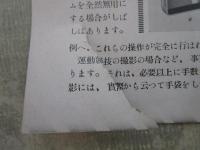 ムを全然無用に
する場合がしば
しばあります。
例へ、これらの操作が完全に行は
運動競技の撮影の場合など、事
ります。それは、必要以上に手数
影には、實際から云つて手袋をし